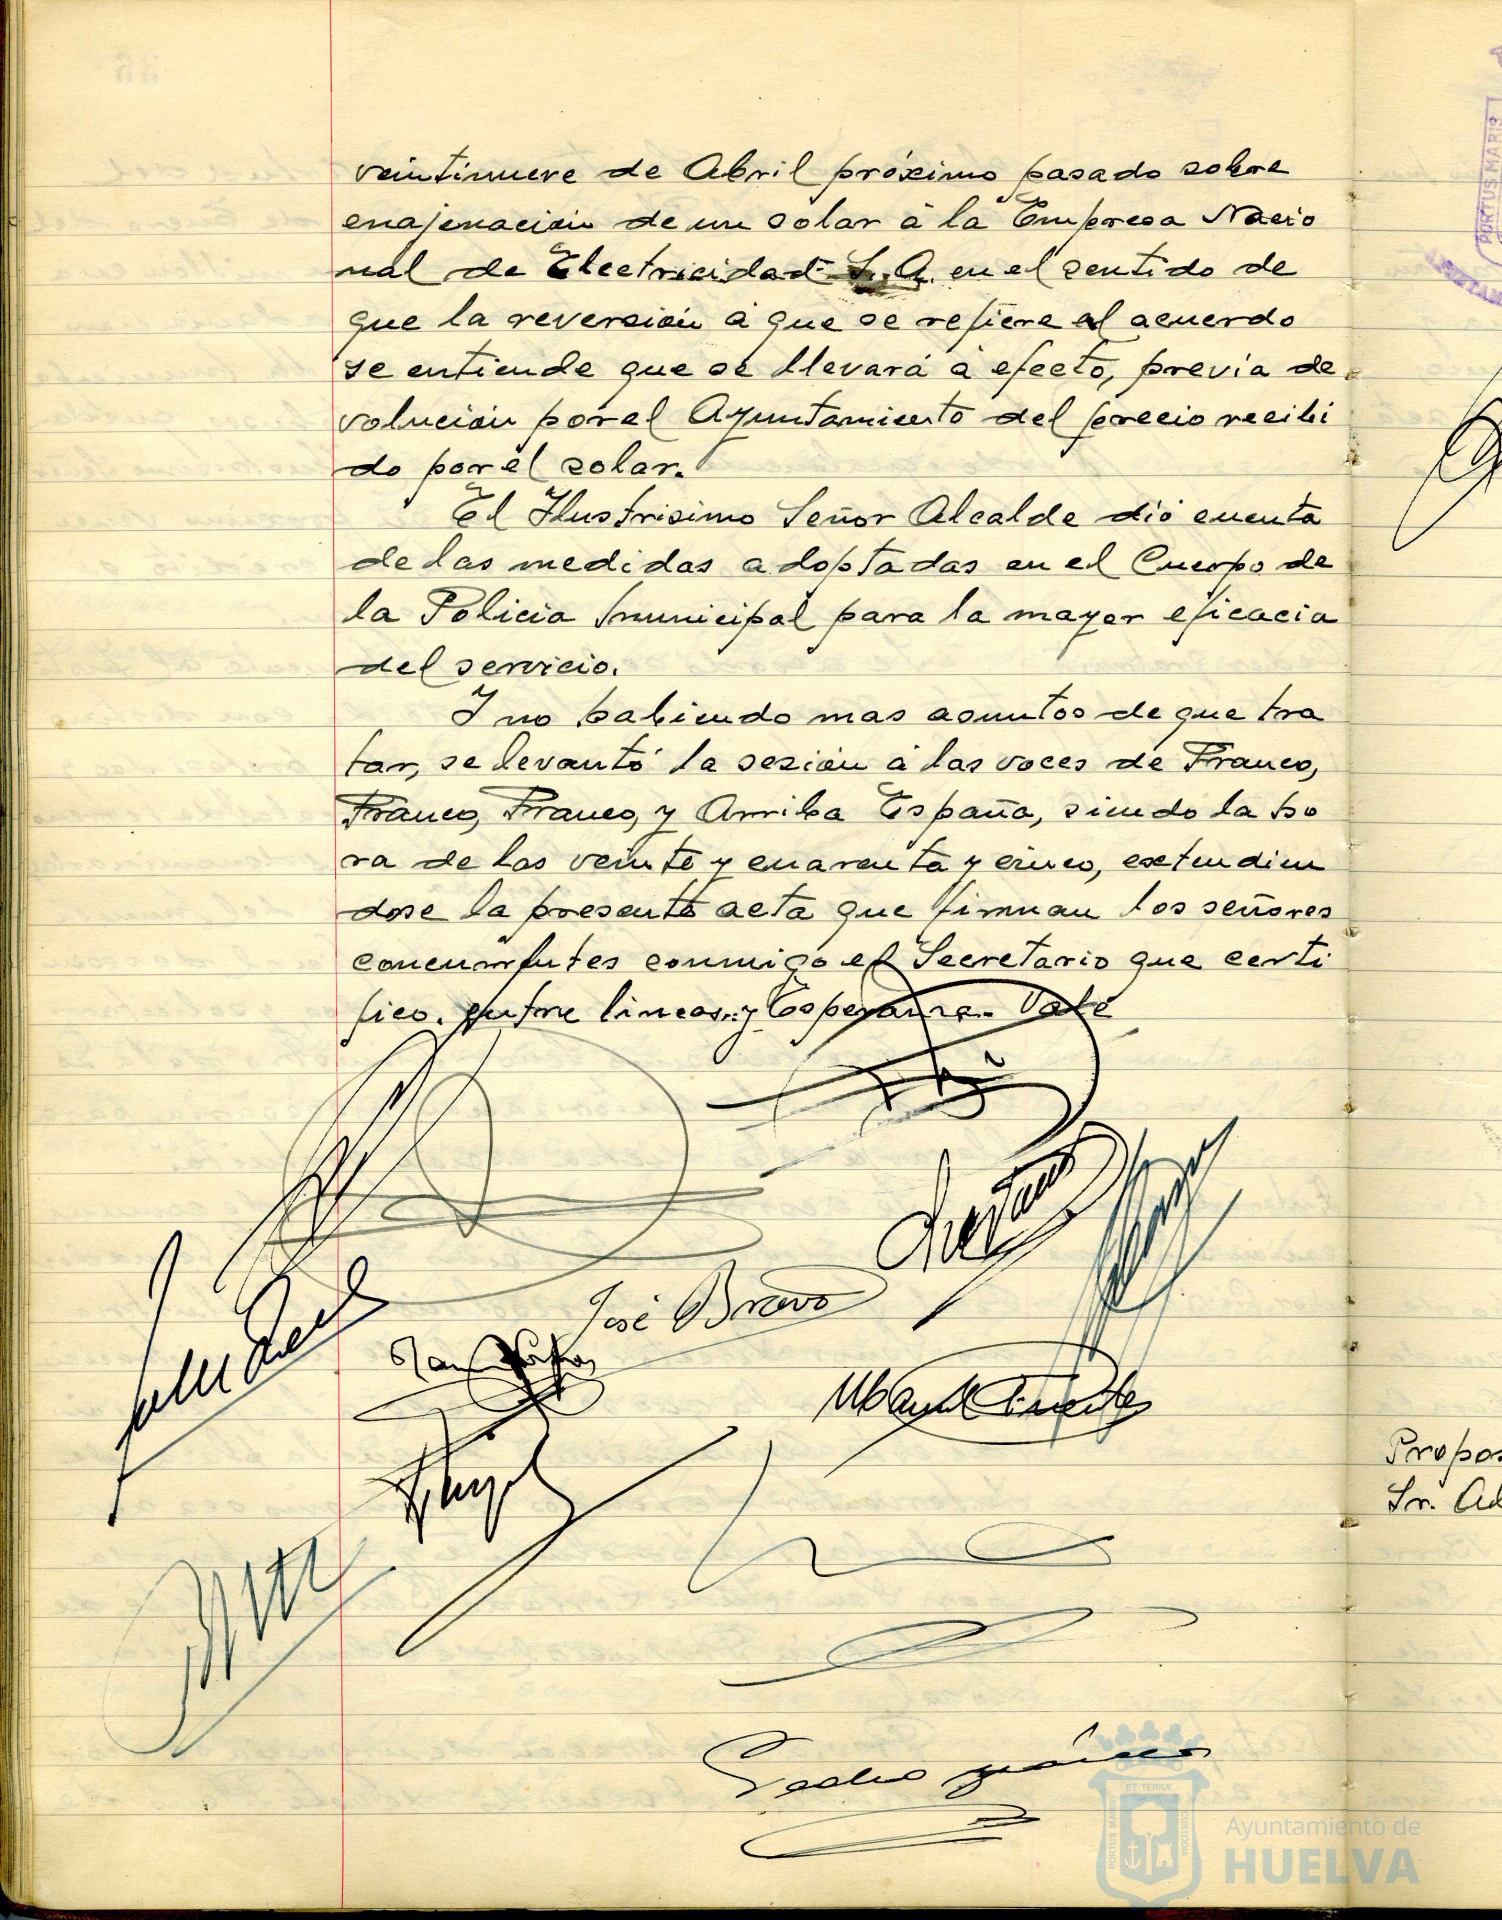 veintinueve de Abril próximo pasado sobre
enajenación de un solar á la Empresa Nacio
nal de Electricidad S.A. en el sentido de
que la reversión á que se refiere el acuerdo
se entiende que se llevará á efecto, previa de
volución por el Ayuntamiento del precio recibi
do por el solar.
El Ilustrisimo Señor Alcalde dió cuenta
de las medidas adoptadas en el Cuerpo de
la Policia municipal para la mayor eficacia
del servicio.
Y no habiendo mas asuntos de que tra
tar, se levantó la sesión á las voces de Franco,
Franco, Franco, y Arriba España, siendo la ho
ra de las veinte y cuarenta y cinco, extendien
dose la presente acta que firman los señores
concurrentes conmigo el Secretario que certi
fico. entre lineas.-y Esperanza.- Vale
José Bravo
Manuel Fuentes
Pedro
PORTUS MARIS
Propos
Sr. Ad
ET TERRÆ
PORTUS MARIS
CUSTODIA
Ayuntamiento de
HUELVA